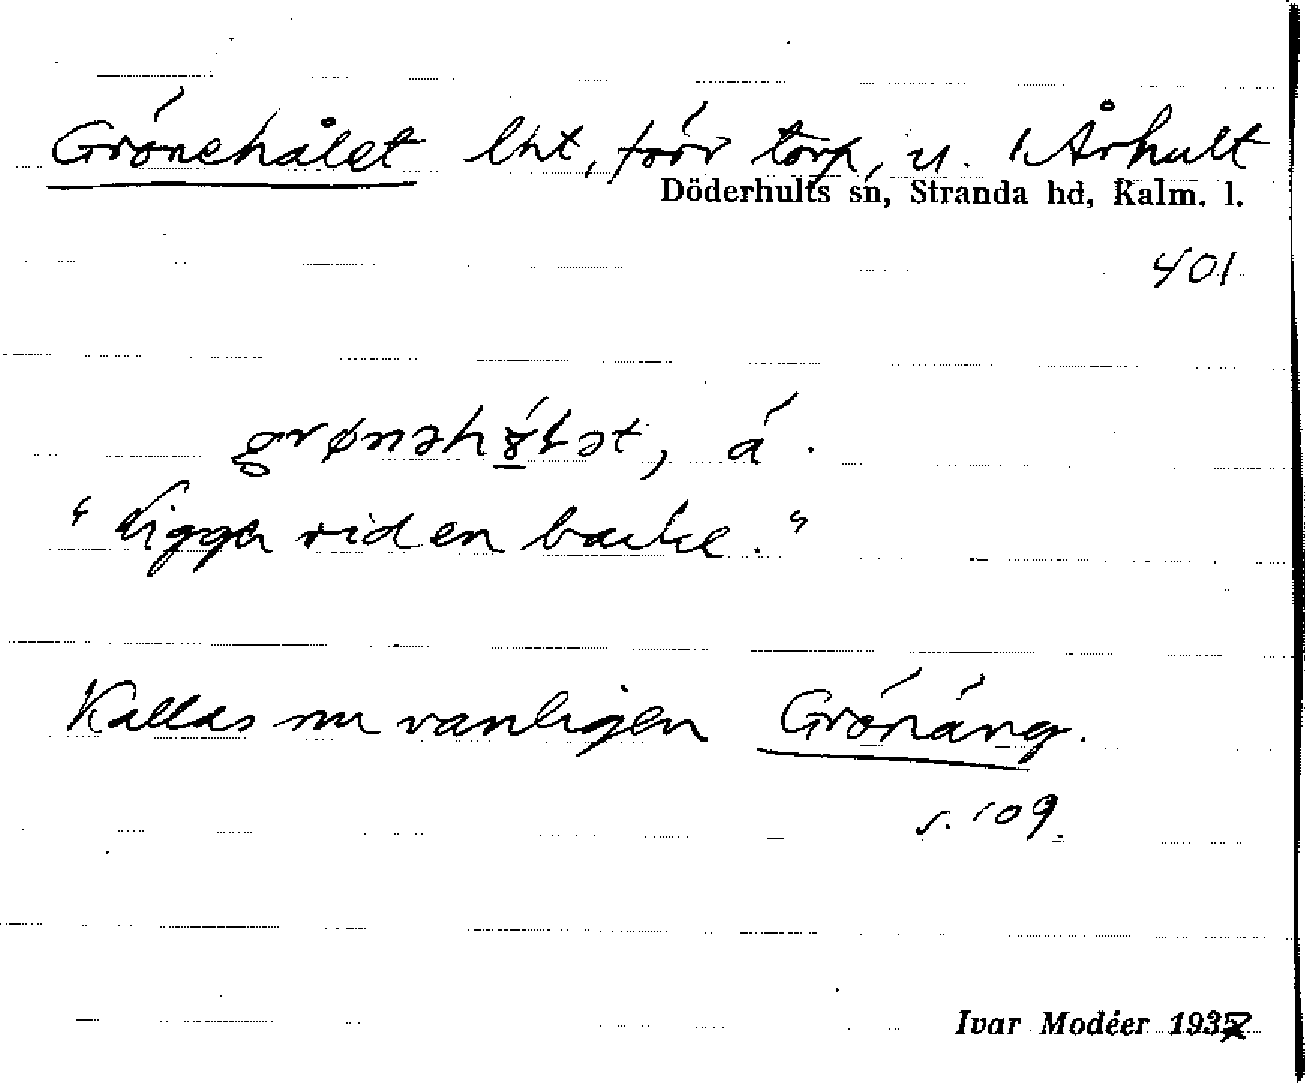 Grönehålet lht, förr torp, u. 1 Århult
Döderhults sn, Stranda hd, Kalm. l.
401
"Ligger vid en backe."
Kallas nu vanligen Grönäng.
s. 109.
Ivar Modéer 193